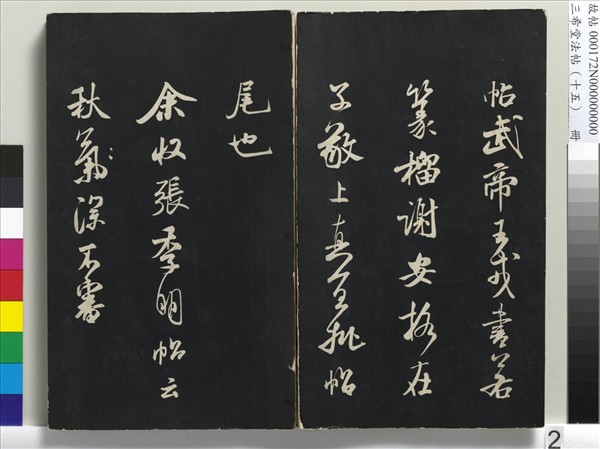 故帖 000172N000000000
三希堂法帖（十五） 冊
帖武帝王戎書若
篆籀謝安格在
子敬上真宜批帖
尾也
余收張季明帖云
秋氣深不審
2